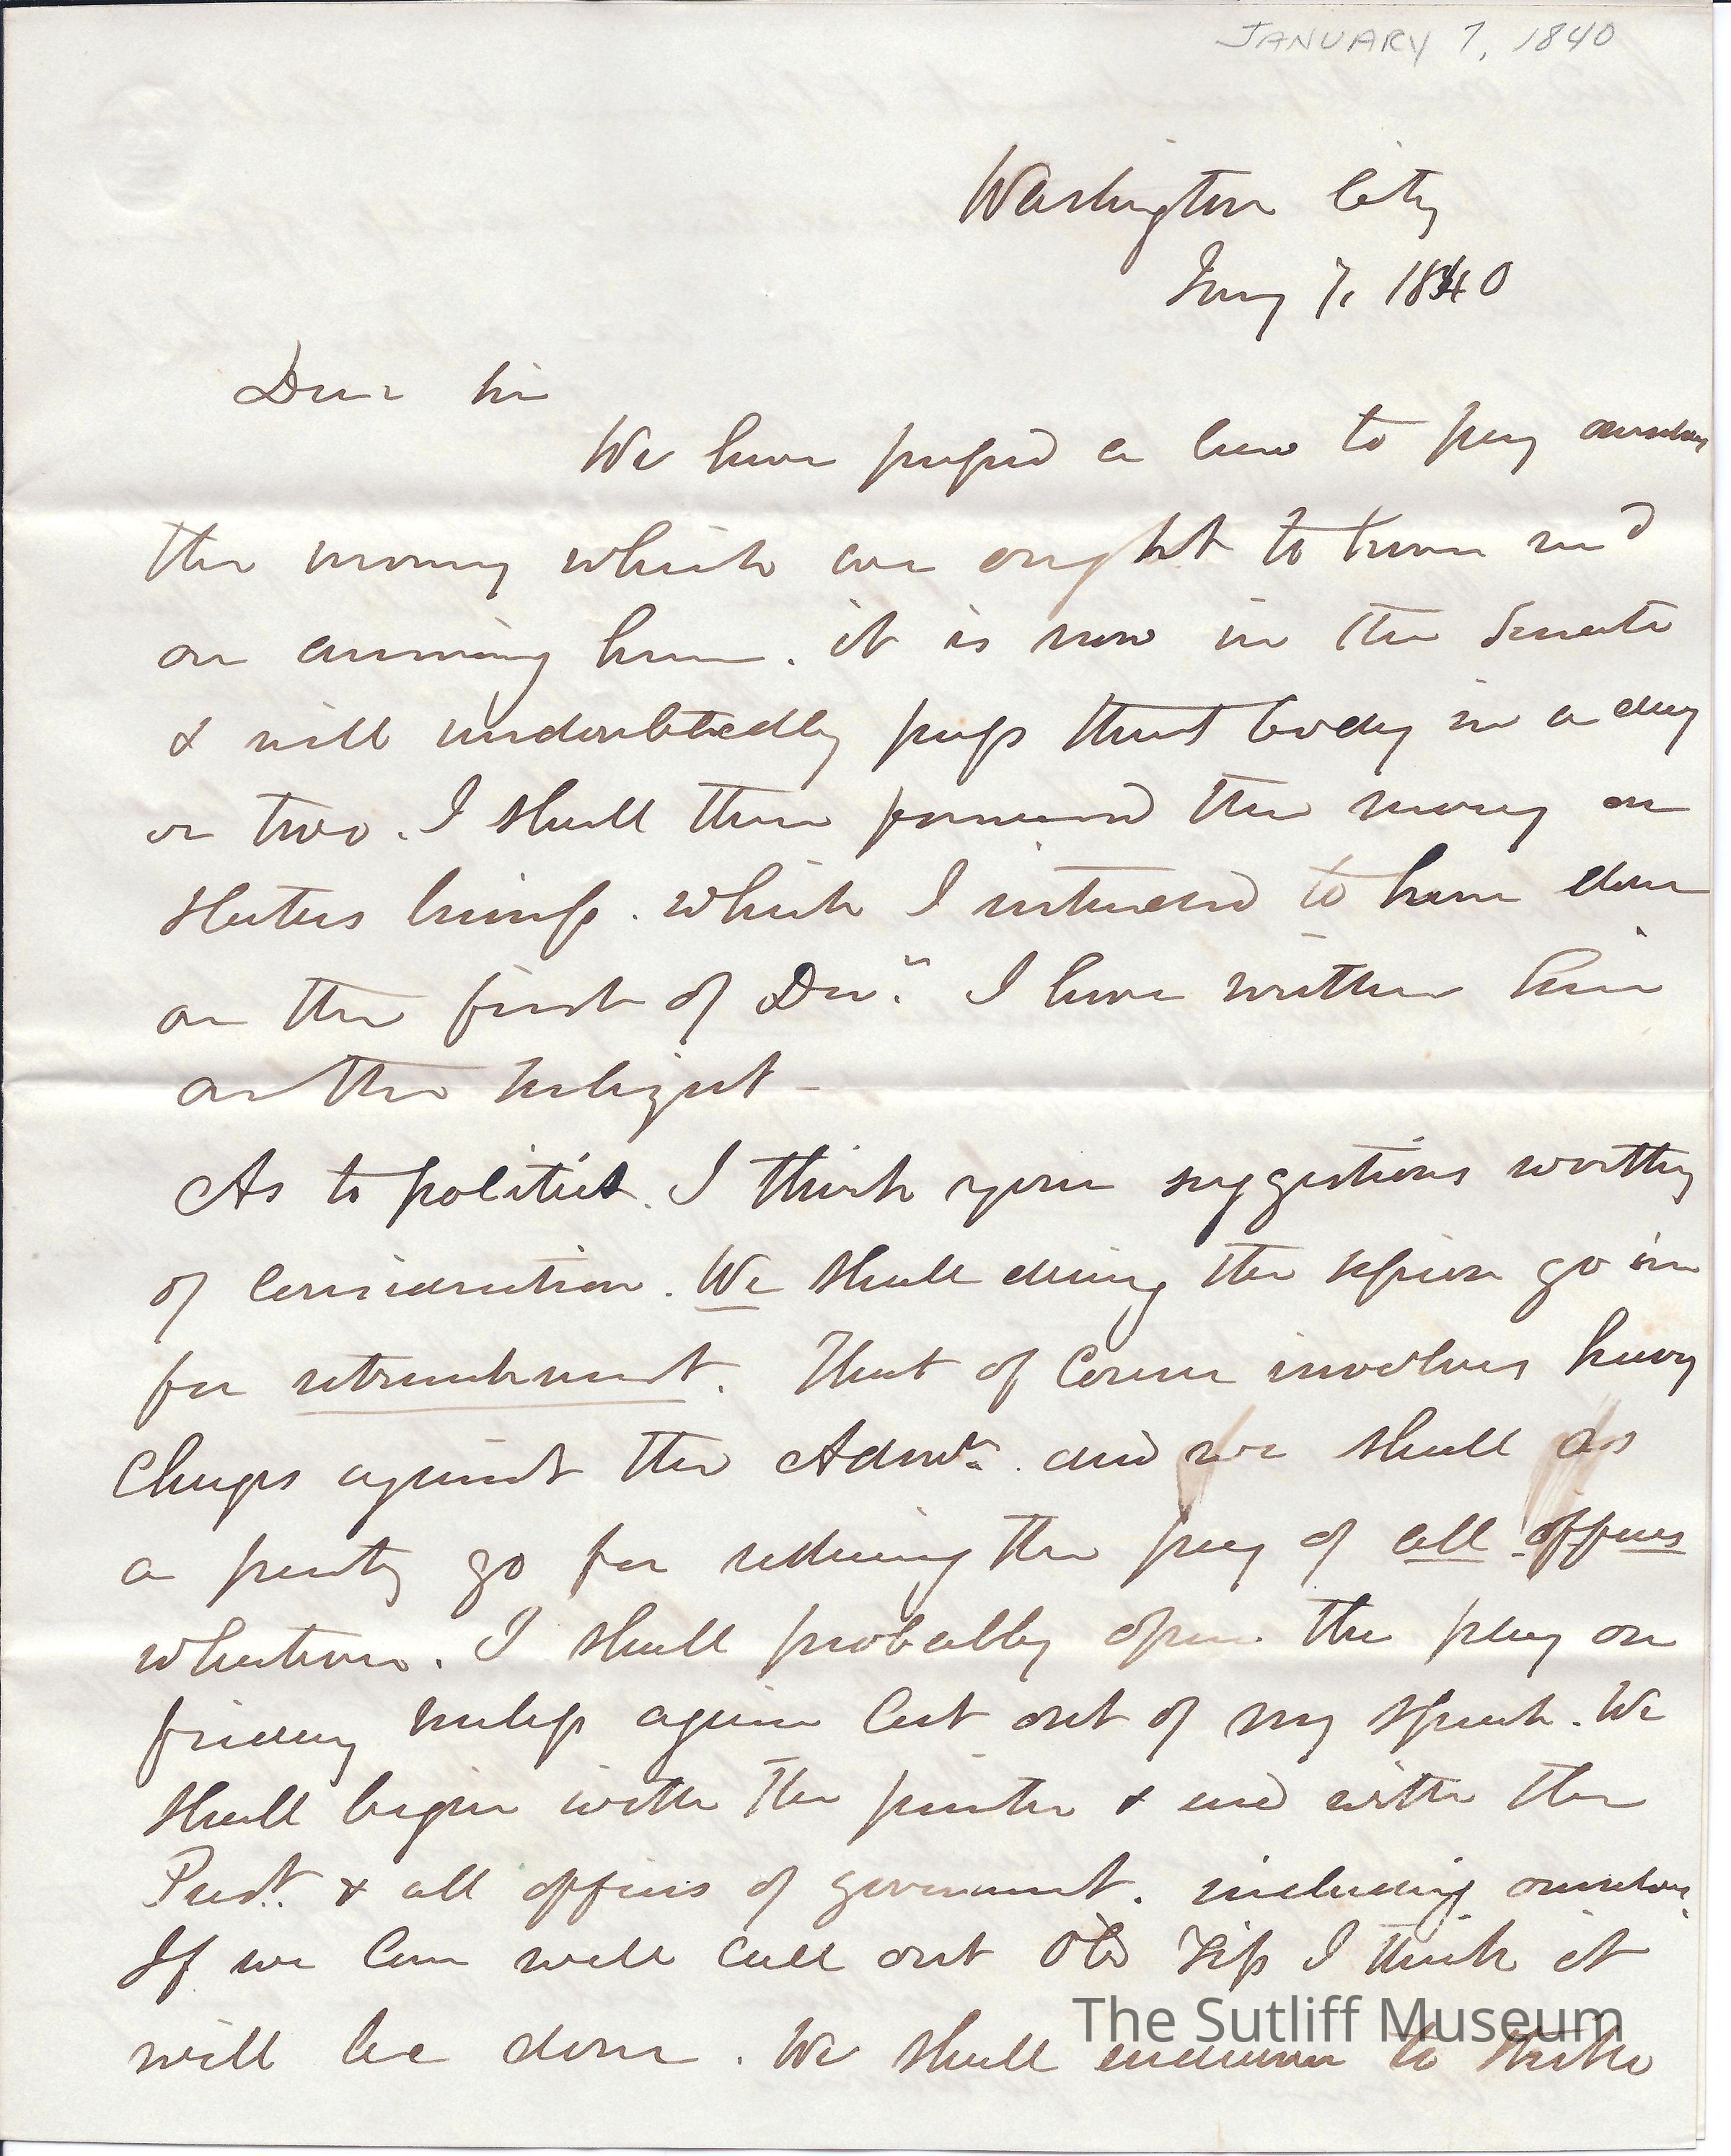 JANUARY 7, 1840
Washington City
Jany 7, 1840
Dear Sir
We have passed a law to pay ourselves
the money which we ought to have recd
on arriving here. it is now in the Senate
& will undoubtedly pass that body in a day
or two. I shall then forward the money on
Slaters which I intended to have done
on the first of Decr. I have written him
on the subject-
As to politics. I think your suggestions worthy
of consideration. We shall during the session go in
for retrenchment. That of course involves heavy
charges against the Admn. and we shall as
a party go for reducing the pay of all officers
whatever. I shall probably open the play on
friday unless again cut out of my speech. We
shall begin with the printer & end with the
Prest. & all officers of government. including ourselves.
If we can well call out Old Tip I think it
will be done. We shall endeavor to strike
The Sutliff Museum